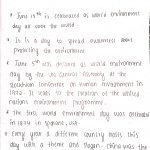 • June 5th is celebrated as world environment
day all over the world.
• It is a day to spread awareness about
protecting the environment.
• June 5th was declared as world environment
day by the UN General Assembly at the
Stockholm conference on human environment in
1972. It leads to the creation of the united
nations environment programme.
• The first world environment day was celebrated
in 1974 in Spokane, USA.
• Every year a different country hosts this
day with a theme and slogan. China was the